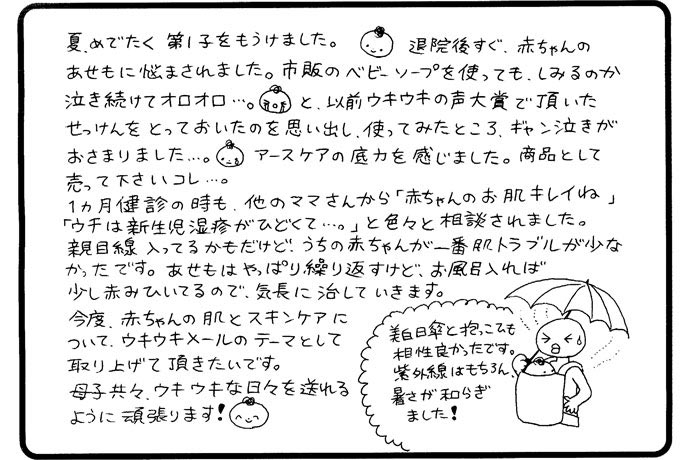 夏、めでたく第1子をもうけました。 退院後すぐ、赤ちゃんの
あせもに悩まされました。市販のベビーソープを使っても、しみるのか
泣き続けてオロオロ…。 と、以前ウキウキの声大賞で頂いた
せっけんをとっておいたのを思い出し、使ってみたところ、ギャン泣きが
おさまりました…。 アースケアの底力を感じました。商品として
売って下さいコレ…。
1ヵ月健診の時も、他のママさんから「赤ちゃんのお肌キレイね」
「ウチは新生児湿疹がひどくて…。」と色々と相談されました。
親目線入ってるかもだけど、うちの赤ちゃんが一番肌トラブルが少な
かったです。あせもはやっぱり繰り返すけど、お風呂入れば
少し赤みひいてるので、気長に治していきます。
今度、赤ちゃんの肌とスキンケアに
ついて、ウキウキメールのテーマとして
取り上げて頂きたいです。
母子共々、ウキウキな日々を送れる
ように頑張ります!
美白日傘と抱っこひも
相性良かったです。
紫外線はもちろん、
暑さが和らぎ
ました!